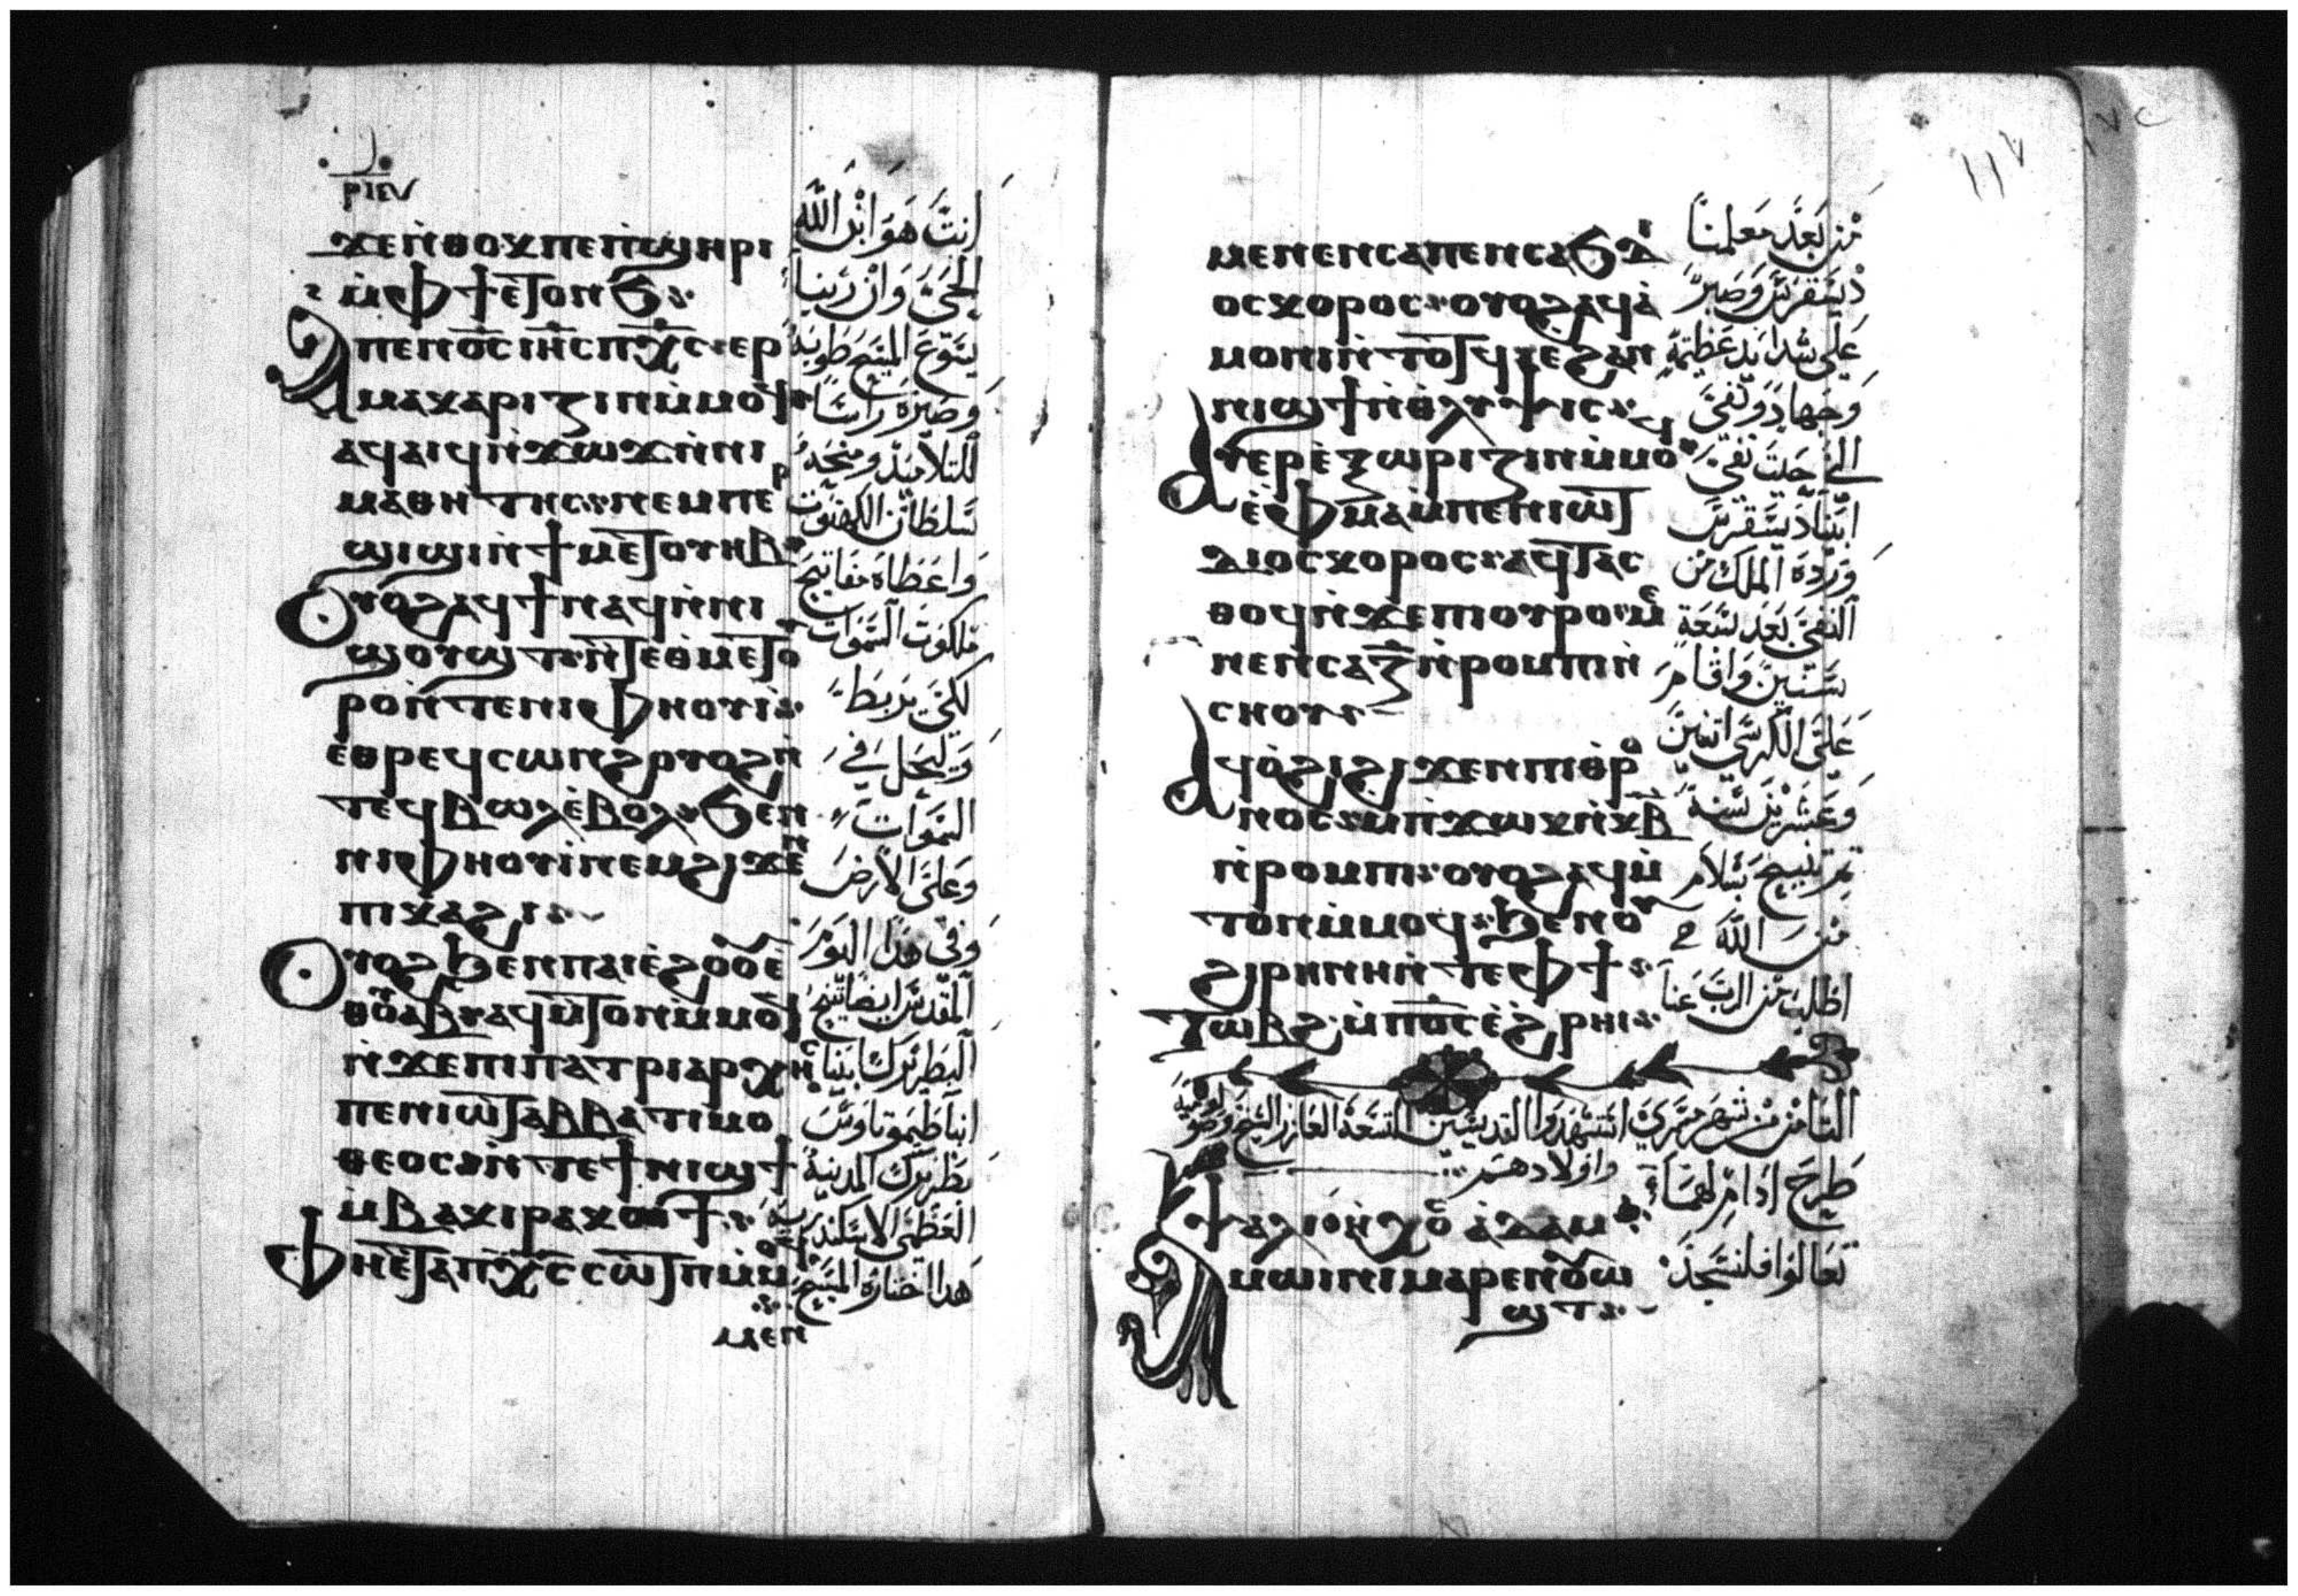 ϫⲉⲛ̇ⲑⲟⲕⲡⲉⲡ̇ϣⲏⲣⲓ
ⲙ̇ⲫϯⲉ̇ⲧⲟⲛϧ
ⲁⲡⲉⲛⲟ̅ⲥ̅ⲓⲏ̅ⲥ̅ⲡⲭ̅ⲥ̅ⲉⲣ
ⲙⲁⲕⲁⲣⲓⲍⲓⲛⲙ̇ⲙⲟϥ
ⲁϥⲁⲓϥⲛ̇ϫⲱϫⲛ̇ⲛⲓ
ⲙⲁⲑⲏⲧⲏⲥⲛⲉⲙⲡⲉⲣ
ϣⲓϣⲓⲛ̇ϯⲙⲉⲧⲟⲩⲏⲃ
ⲟⲩⲟϩⲁϥϯⲛⲁϥⲛ̇ⲛⲓ
ϣⲟⲩϣⲧⲛ̇ⲧⲉⲑⲙⲉⲧⲟ
ⲣⲟⲛ̇ⲧⲉⲛⲓⲫⲏⲟⲩⲓ̇
ⲉ̇ⲑⲣⲉϥⲥⲱⲛϩⲟⲩⲟϩⲛ̇
ⲧⲉϥⲃⲱⲗⲉ̇ⲃⲟⲗϧⲉⲛ
ⲛⲓⲫⲏⲟⲩⲓ̇ⲛⲉⲙϩⲓϫⲉⲛ
ⲡⲓⲕⲁϩⲓ
ⲟⲩⲟϩϧⲉⲛⲡⲁⲓⲉ̇ϩⲟⲟⲩⲉ̇
ⲑⲟⲩⲁⲃⲁϥⲙ̇ⲧⲟⲛⲙ̇ⲙⲟϥ
ⲛ̇ϫⲉⲡⲓⲡⲁⲧⲣⲓⲁⲣⲭⲏⲥ
ⲡⲉⲛⲓⲱⲧⲁⲃⲃⲁⲧⲓⲙⲟ
ⲑⲉⲟⲥⲛ̇ⲧⲉϯⲛⲓϣϯ
ⲙ̇ⲃⲁⲕⲓⲣⲁⲕⲟϯ
ⲫⲏⲉ̇ⲧⲁⲡⲭ̅ⲥ̅ⲥⲱⲧⲡⲙ̇ⲙⲟϥ
ⲙⲉⲛ
انت هو ابن الله
الحي وان ربنا
يسوع المسيح طوبه
وصيره راسا
للتلاميذ ومنحه
سلطان الكهنوت
واعطاه مفاتيح
ملكوت السموات
لكي يربط
ويحل في
السموات
وعلى الارض
وفي هذا اليوم
المقدس ايضا تنيح
البطريرك ابينا
انبا طيموتاوس
بطريرك المدينة
العظمى الاسكندرية
هذا اختاره المسيح
١١٧
ⲙⲉⲛⲉⲛⲥⲁⲡⲉⲛⲥⲁϧⲇⲓ
ⲟⲥⲕⲟⲣⲟⲥⲟⲩⲟϩⲁϥⲁ̇
ⲙⲟⲛⲓⲛ̇ⲧⲟⲧϥⲉϩⲁⲛ
ⲛⲓϣϯⲛ̇ⲑⲗⲩⲯⲓⲥ
ⲁⲩⲉⲣⲉ̇ⲍⲱⲣⲓⲍⲓⲛⲙ̇ⲙⲟϥ
ⲉ̇ⲫⲙⲁⲙ̇ⲡⲉⲛⲓⲱⲧ
ⲇⲓⲟⲥⲕⲟⲣⲟⲥⲁϥⲧⲁⲥ
ⲑⲟϥⲛ̇ϫⲉⲡⲓⲟⲩⲣⲟⲙⲉ
ⲛⲉⲛⲥⲁⲍ̅ⲛ̇ⲣⲟⲙⲡⲓⲛ̇
ⲥⲛⲟⲩ
ⲁϥⲟ̇ϩⲓϩⲓϫⲉⲛⲡⲓⲑⲣⲟ
ⲛⲟⲥⲙⲡ̇ϫⲱⲕⲛ̇ⲕ̅ⲃ̅
ⲛ̇ⲣⲟⲙⲡⲓⲟⲩⲟϩⲁϥⲙ̇
ⲧⲟⲛⲙ̇ⲙⲟϥϧⲉⲛⲟⲩ
ϩⲓⲣⲏⲛⲏⲛ̇ⲧⲉⲫϯ
ⲧⲱⲃϩⲙ̇ⲡⲟ̅ⲥ̅ⲉ̇ϩⲣⲏⲓ
من بعد معلمنا
ديسقرس وصبر
على شدايد عظيمة
وجهاد ونفي
ابينا ديسقرس
ورده الملك من
النفي بعد سبعة
سنين واقام
على الكرسي اتنين
وعشرين سنة
ثم تنيح بسلام
من الله
اطلب من الرب عنا
التامن من شهر مسري استشهدوا القديسين السبعة العازر الشيخ وصوفية
واولادهم
طرح ادام لهم
ⲯⲁⲗⲓⲟⲛ̇ⲭⲟⲥⲁ̇ⲇⲁⲙ
ⲁⲙⲱⲓⲛⲓⲙⲁⲣⲉⲛⲟⲩⲱ
ϣⲧ
تعالوا فلنسجد